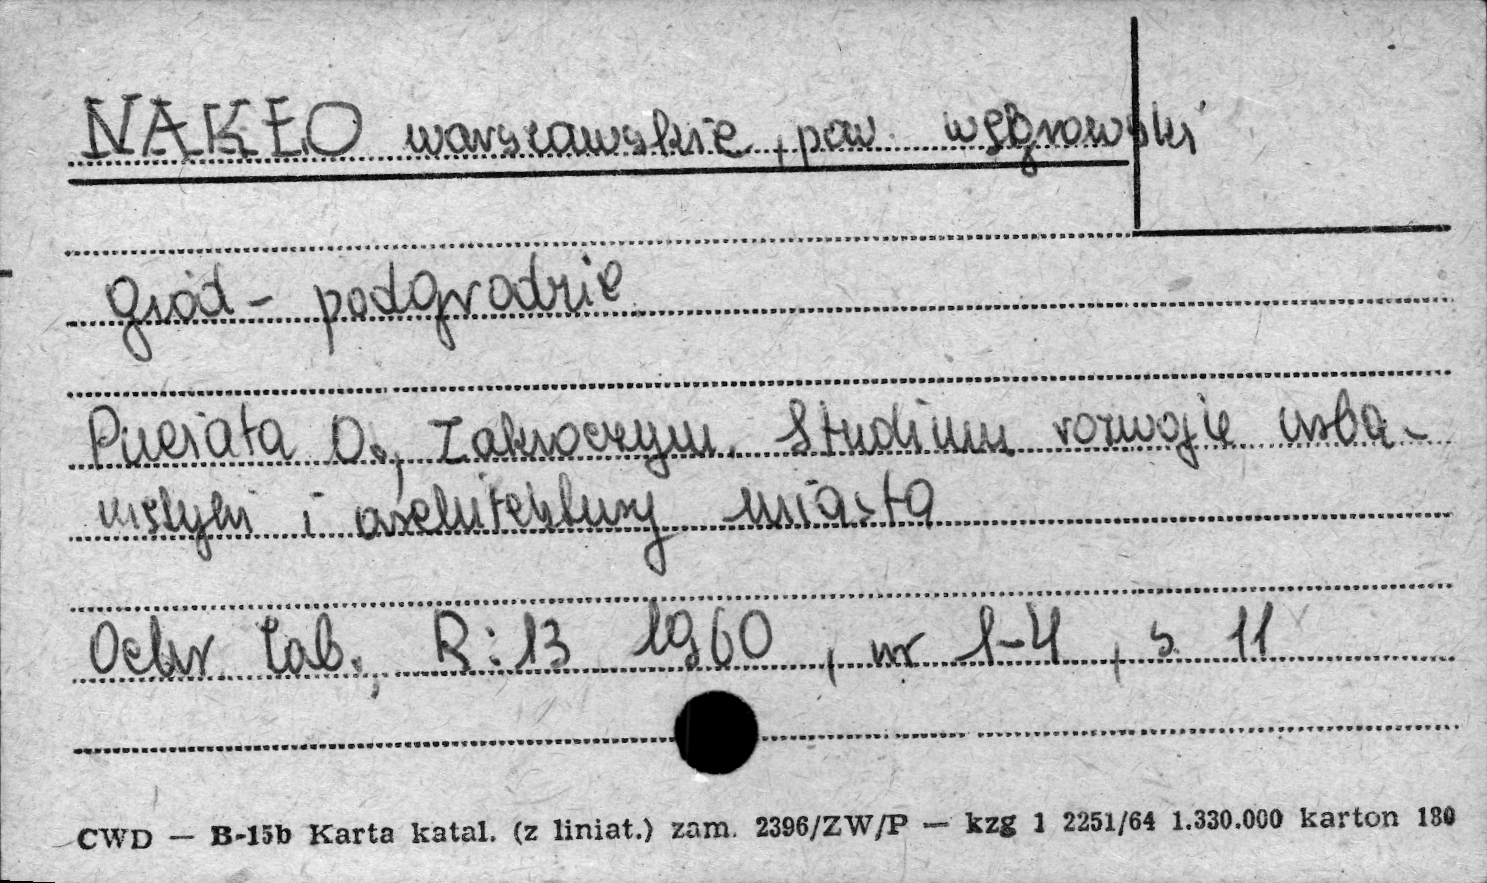 NAKŁO warszawskie, pow. węgrowski
gród - podgrodzie
Puciata O., Zakroczym. Studium rozwoju urba-
nistyki i architektury miasta
Ochr. Zab., R: 13 1960, nr 1-4, s. 11
CWD — B-15b Karta katal. (z liniat.) zam. 2396/ZW/P — kzg 1 2251/64 1.330.000 karton 180